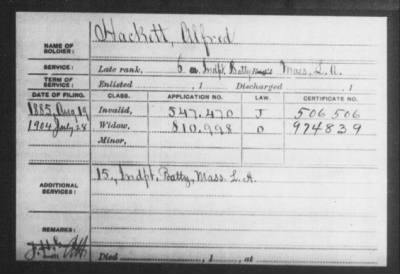 Hackett, Alfred
NAME OF SOLDIER:
SERVICE: Late rank, 6 Indpt. Batty Mass. L. A.
TERM OF SERVICE: Enlisted , 1 Discharged , 1
DATE OF FILING. CLASS. APPLICATION NO. LAW. CERTIFICATE NO.
1885, Aug. 19 Invalid, 547.470 J 506 506
1904 July 28 Widow, 810.998 O 974839
Minor,
ADDITIONAL SERVICES: 15, Indpt. Batty, Mass. L. A.
REMARKS:
Died , 1 , at